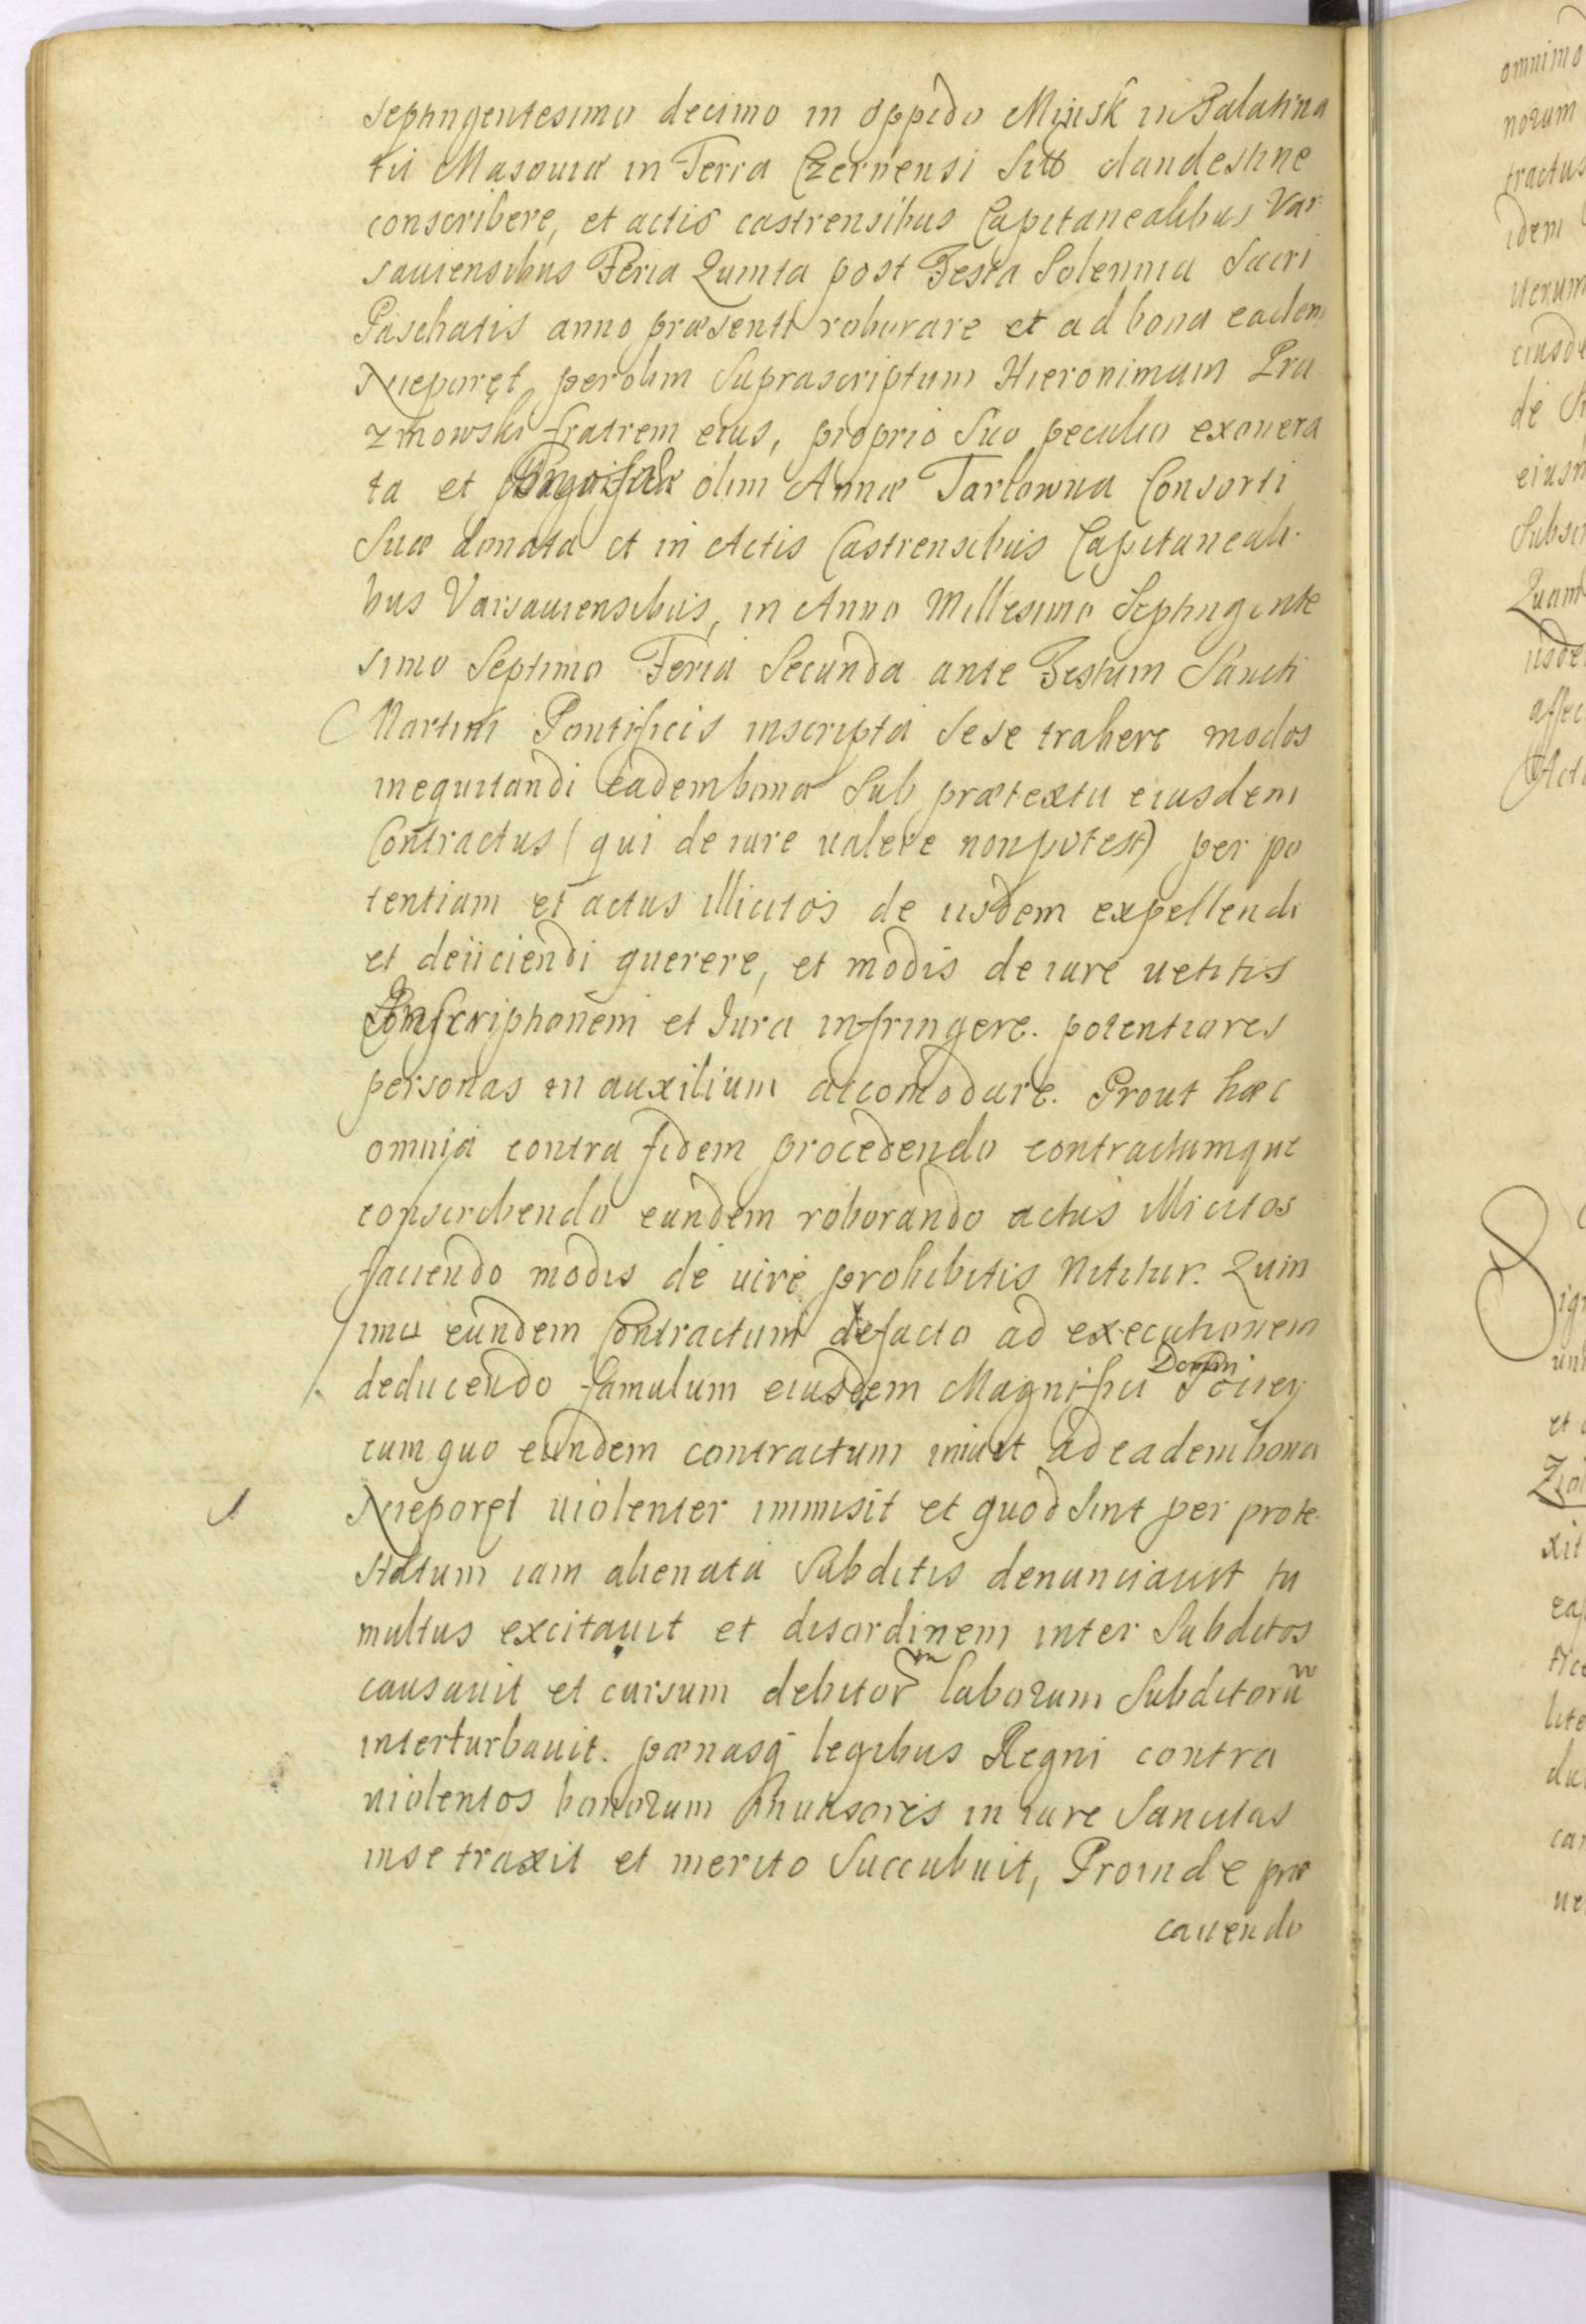 septingentesimo decimo in oppido Mińsk in Palatina
tu Masouiæ in Terra Czernensi sito clandestine
conscribere, et actis castrensibus Capitanealibus Var
sauiensibus Feria Quinta post Festa Solennia Sacri
Paschatis anno præsenti roborare et ad bona eadem
Nieporęt per olim Suprascriptum Hieronimum Pra
zmowski fratrem eius, proprio suo peculio exonera
ta et olim Annæ Tarłowna Consorti
Suæ donata et in Actis Castrensibus Capitaneali-
bus Varsauiensibus, in Anno Millesimo Septingente
simo Septimo Feria Secunda ante Festum Sancti
Martini Pontificis inscripta sese trahere modos
inequitandi eadem bona sub prætextu eiusdem
Contractus (qui de iure ualere non potest) per po
tentiam et actus illicitos de iisdem expellendi
et deiiciendi querere, et modis de iure uetitis
Inscriptionem et Jura infringere. potentiores
personas in auxilium accomodare. Prout hæc
omnia contra fidem procedendo contractumque
conscribendo eundem roborando actus illicitos
faciendo modis de iure prohibitis nititur. Quin
imo eundem Contractum de facto ad executionem
deducendo famulum eiusdem Magnifici Domini
cum quo eundem contractum iniuit ad eadem bona
Nieporęt uiolenter immisit et quod sint per prote-
statum iam alienata Subditis denunciauit tu
multus excitauit et disordinem inter Subditos
causauit et cursum debitorum laborum Subditorum
interturbauit. pænasq legibus Regni contra
uiolentos bonorum inuasores in iure Sancitas
in se traxit et merito Succubuit, Proinde præ
cauendo
omnimo
norum
tractus
idem
uerum
eiusde
de
eiusm
Subscr
Quam
iisde
affec
Acti
et
xit